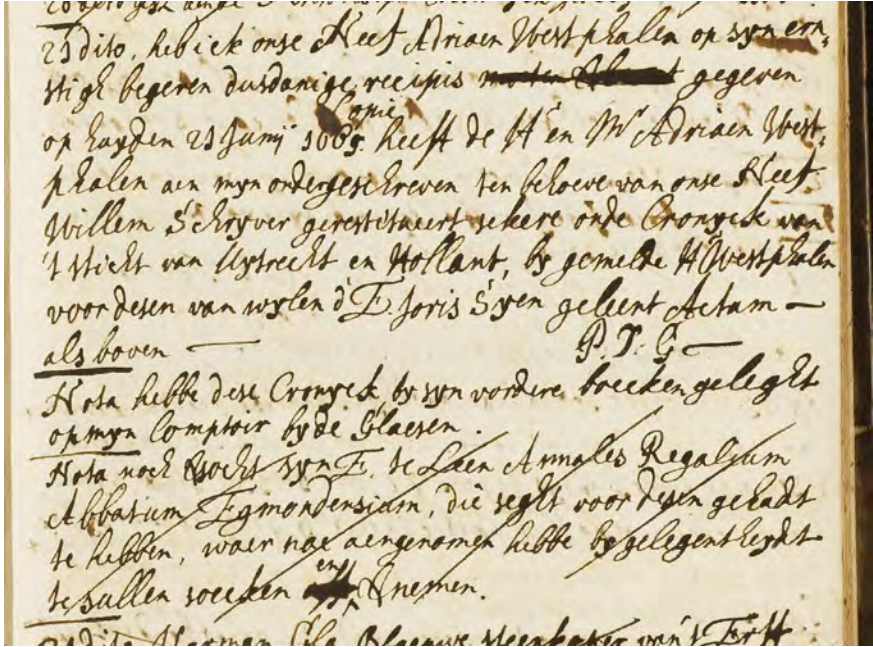 21 dito, heb ick onse Neef Adriaen Westphalen op syn ern-
stigh begeren dusdanige recipis gegeven
Copie
op huyden 21 Junij 1685 heeft de Hr en Mr Adriaen West-
phalen aen myn ondergeschreven ten behoeve van onse Neef
Willem Schryver gerestitueert sekere oude Cronyck van
't sticht van Uytrecht en Hollant, by gemelde Hr Westphalen
voor desen van wylen d'E. Joris Syen geleent Actum
als boven P. T. G
Nota hebbe dese Cronyck by syn vordere boecken geleght
op myn Comptoir by de Glaesen.
Nota noch syn E. te Leen Annales Regalium
Abbatum Egmondensium, die seght voor desen gehadt
te hebben, waer nae aengenomen hebbe by gelegentheydt
te sullen soecken en